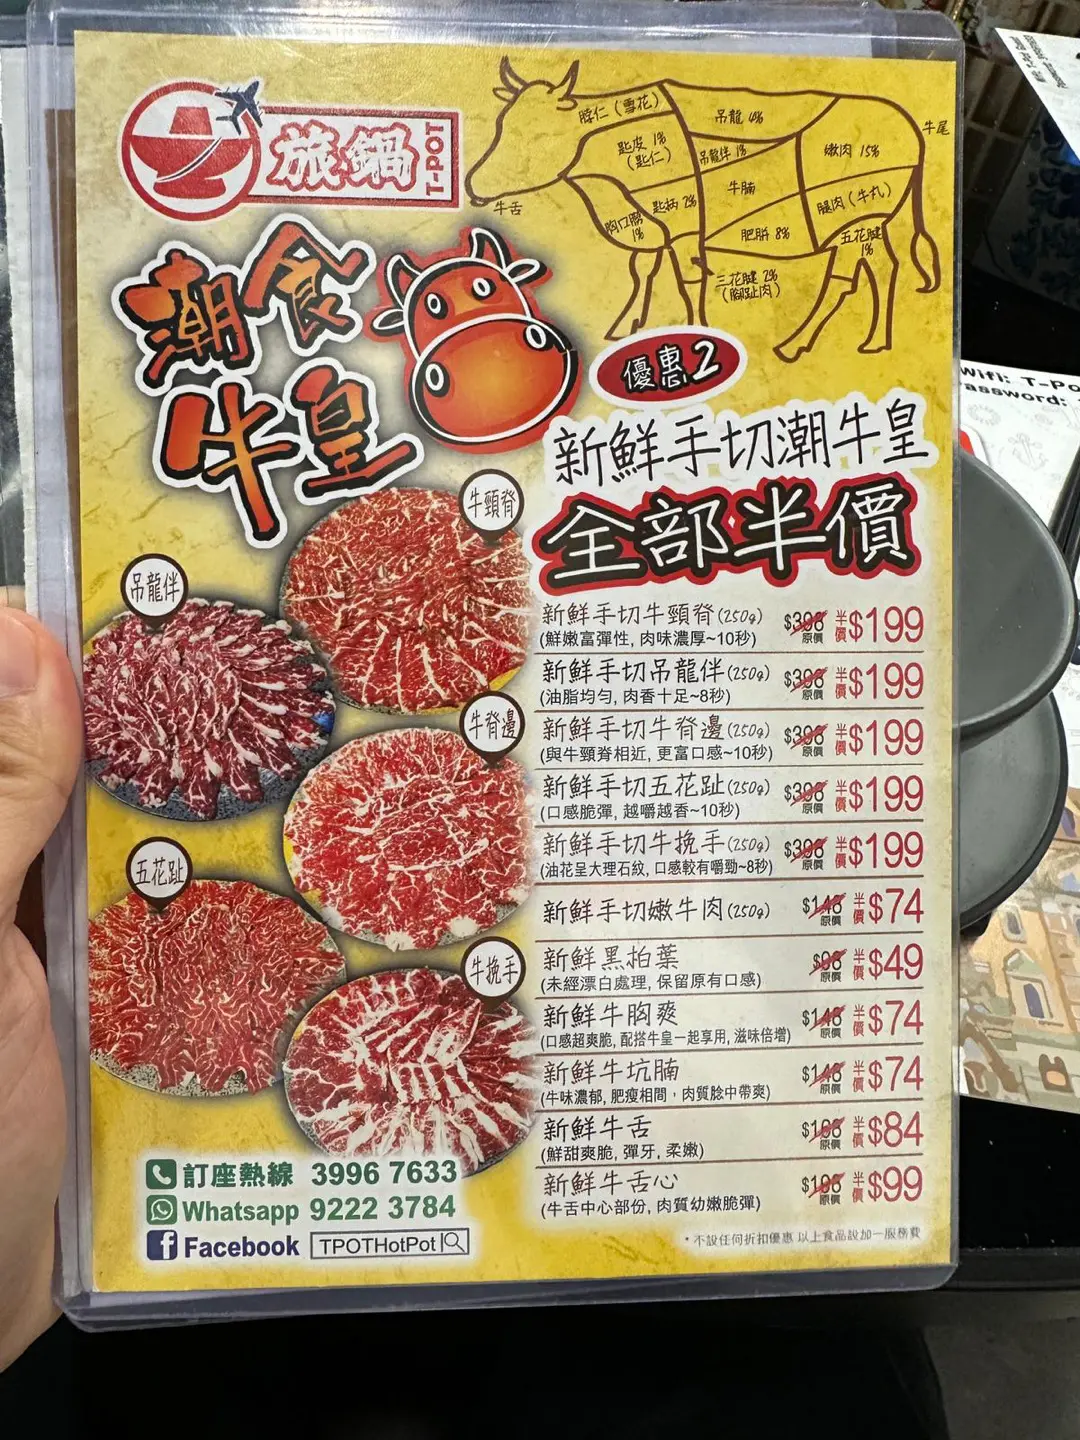 旅鍋
T-POT
潮食
牛皇
脖仁(雪花)
吊龍 4%
牛尾
匙皮 1%
(匙仁)
吊龍伴 1%
嫩肉 15%
牛腩
匙柄 2%
腿肉(牛丸)
牛舌
胸口膶
1%
肥胼 8%
五花腱
1%
三花腱 2%
(腳趾肉)
優惠2
新鮮手切潮牛皇
全部半價
牛頸脊
吊龍伴
牛脊邊
五花趾
牛挽手
新鮮手切牛頸脊(250g) $398 原價 半價 $199
(鮮嫩富彈性, 肉味濃厚~10秒)
新鮮手切吊龍伴(250g) $398 原價 半價 $199
(油脂均勻, 肉香十足~8秒)
新鮮手切牛脊邊(250g) $398 原價 半價 $199
(與牛頸脊相近, 更富口感~10秒)
新鮮手切五花趾(250g) $398 原價 半價 $199
(口感脆彈, 越嚼越香~10秒)
新鮮手切牛挽手(250g) $398 原價 半價 $199
(油花呈大理石紋, 口感較有嚼勁~8秒)
新鮮手切嫩牛肉(250g) $148 原價 半價 $74
新鮮黑柏葉 $98 原價 半價 $49
(未經漂白處理, 保留原有口感)
新鮮牛胸爽 $148 原價 半價 $74
(口感超爽脆, 配搭牛皇一起享用, 滋味倍增)
新鮮牛坑腩 $148 原價 半價 $74
(牛味濃郁, 肥瘦相間，肉質腍中帶爽)
新鮮牛舌 $168 原價 半價 $84
(鮮甜爽脆, 彈牙, 柔嫩)
新鮮牛舌心 $198 原價 半價 $99
(牛舌中心部份, 肉質幼嫩脆彈)
訂座熱線 3996 7633
Whatsapp 9222 3784
Facebook TPOTHotPot
•不設任何折扣優惠 以上食品設加一服務費
Wifi: T-Po
assword: